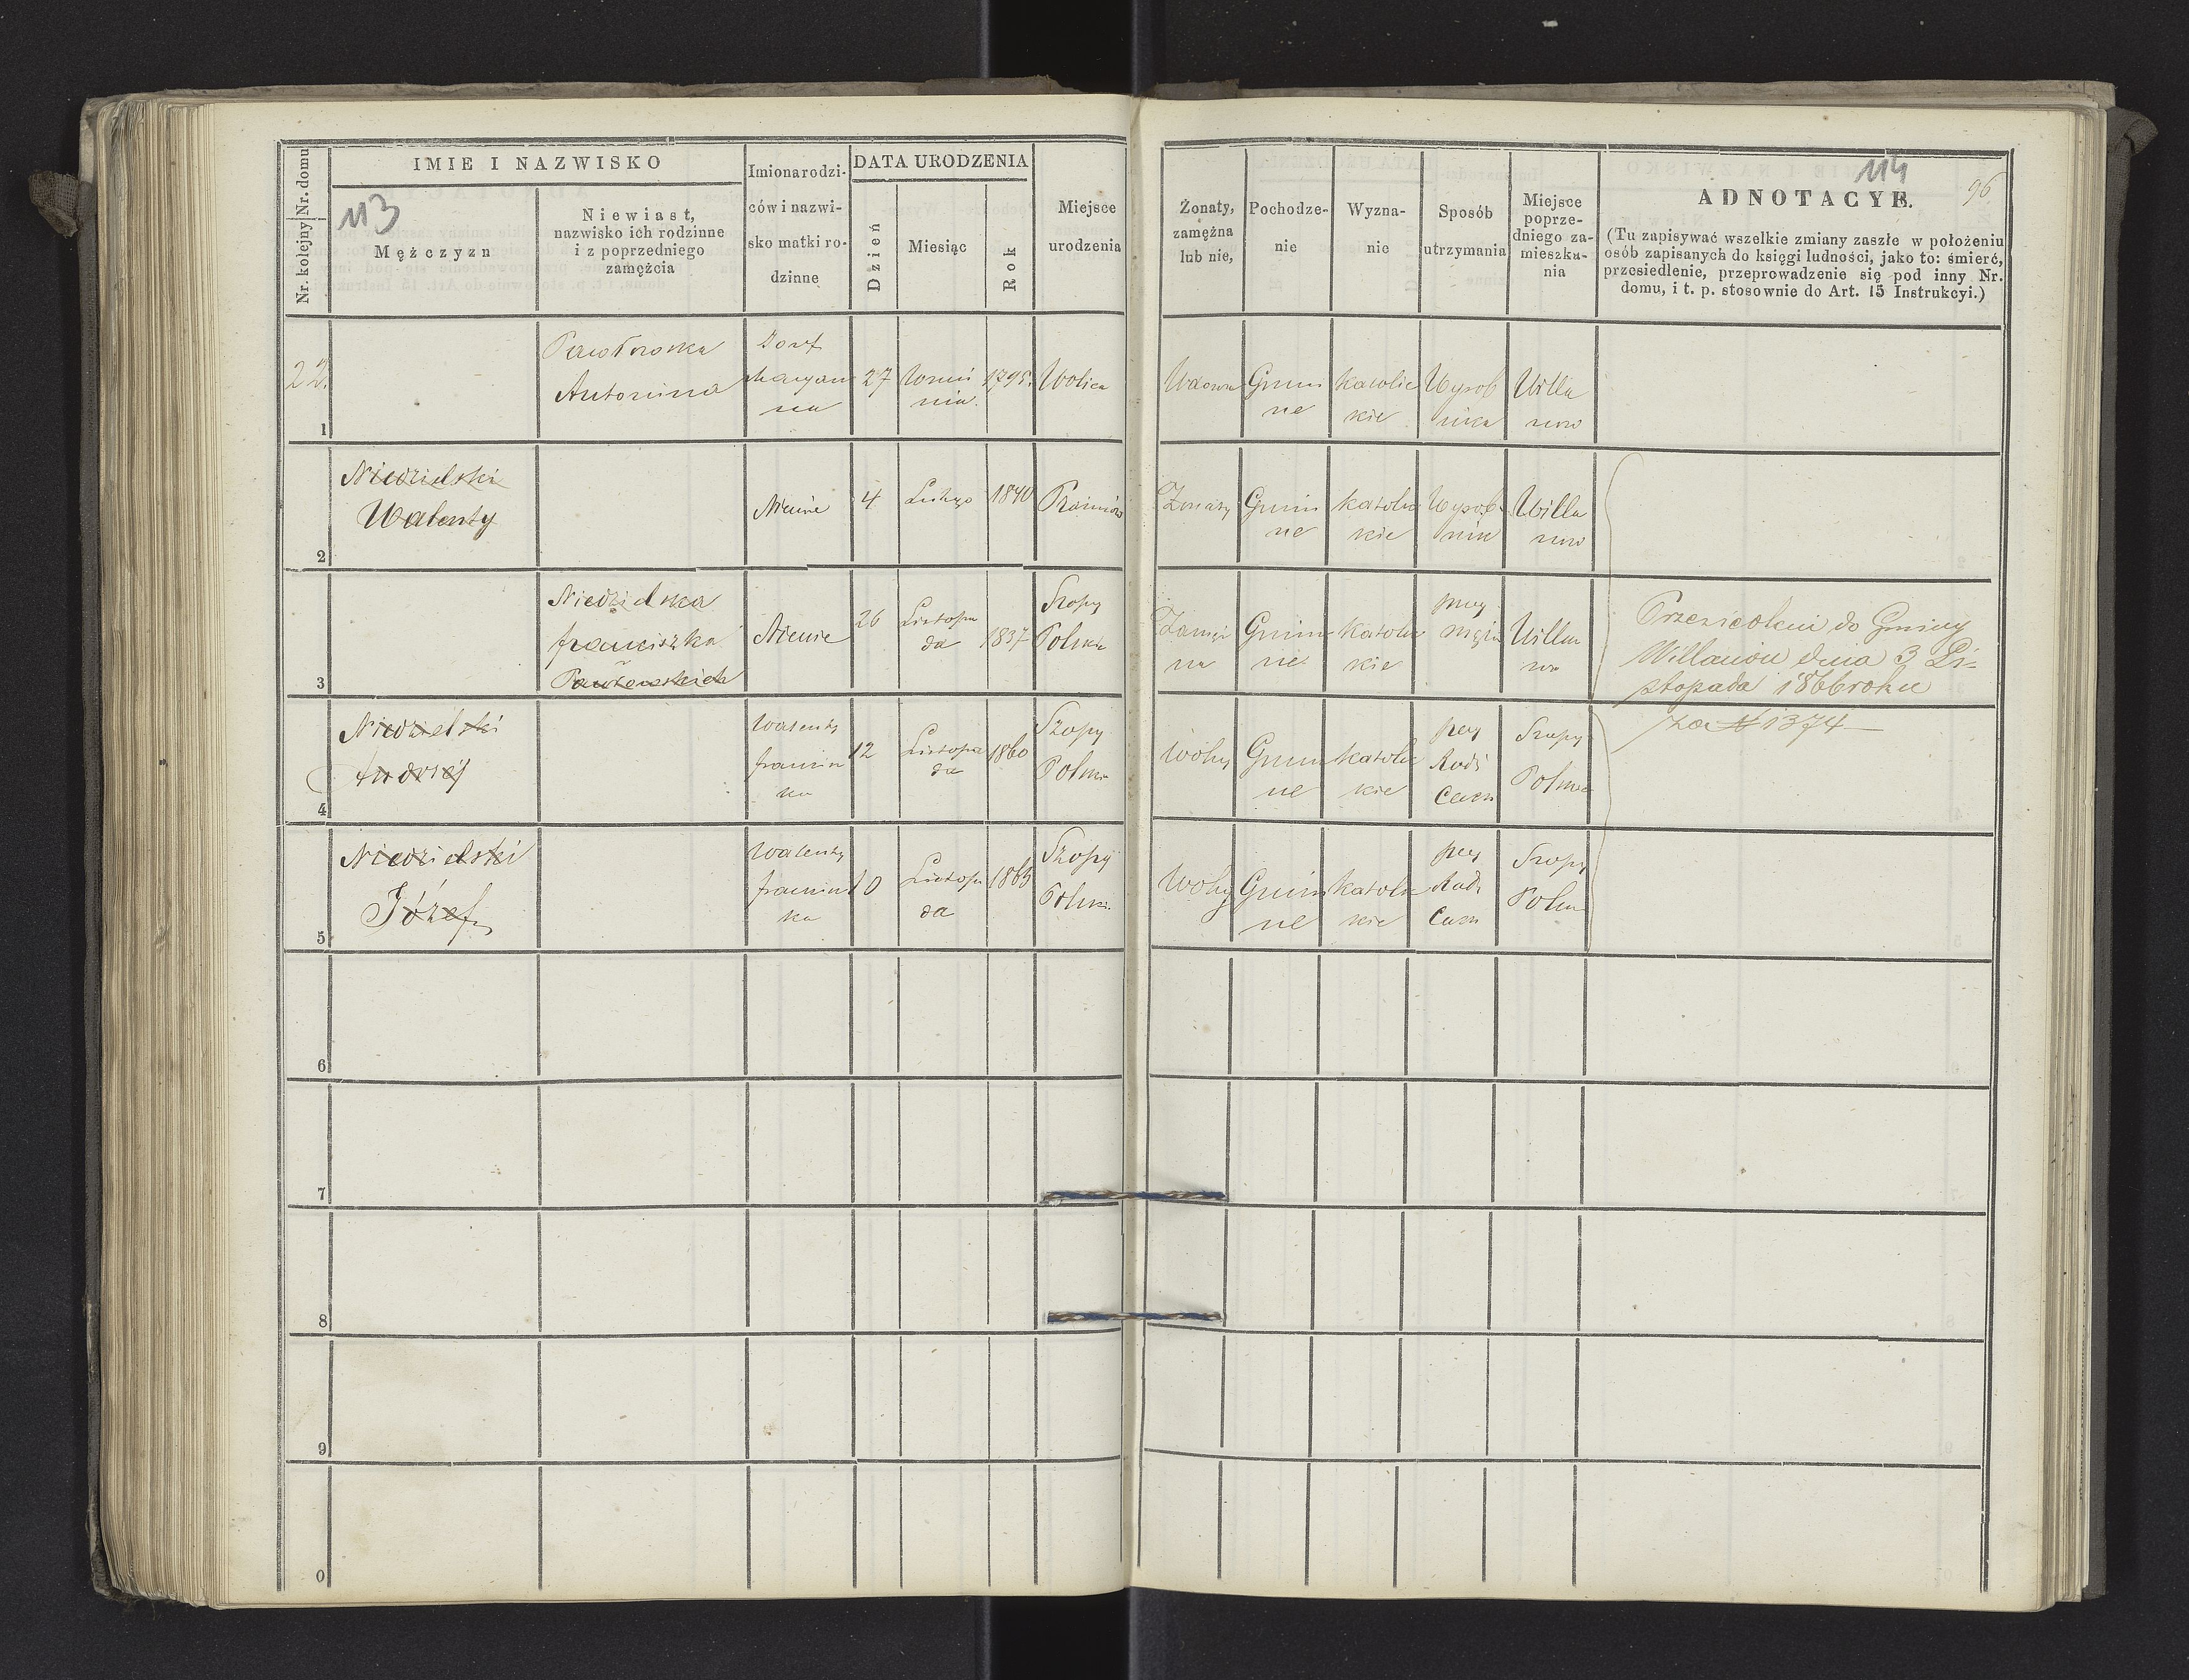 Nr. kolejny Nr. domu
IMIE I NAZWISKO
113
Mężczyzn
Niewiast,
nazwisko ich rodzinne
i z poprzedniego
zamężcia
Imiona rodzi-
ców i nazwi-
sko matki ro-
dzinne
DATA URODZENIA
Dzień
Miesiąc
Rok
Miejsce
urodzenia
Żonaty,
zamężna
lub nie,
Pochodze-
nie
Wyzna-
nie
Sposób
utrzymania
Miejsce
poprze-
dniego za-
mieszka-
nia
114
96
ADNOTACYE.
(Tu zapisywać wszelkie zmiany zaszłe w położeniu
osób zapisanych do księgi ludności, jako to: śmierć,
przesiedlenie, przeprowadzenie się pod inny Nr.
domu, i t. p. stosownie do Art. 15 Instrukcyi.)
22.
1
Pawłowska
Antonina
Józef
Maryan
na
27
Wrześ
nia
1795.
Wolica
Wdowa
Gmin
ne
Katolic
kie
Wyrob
nika
Willa
now
2
Niedzielski
Walenty
Niewie
4
Lutego
1840
Żonaty
Gmin
ne
Katolic
kie
Wyrob
nik
Willa
now
3
Niedzielska
Franciszka
Pawłowskich
Niewie
26
Listopa
da
1837
Szopy
Polskie
Zamęż
na
Gmin
ne
Katolic
kie
przy
mężu
Willa
now
Przesiedleni do Gminy
Willanow dnia 3 Li-
stopada 1866 roku
za N 1374
4
Niedzielski
Andrzej
Walenty
Francisz
ka
12
Listopa
da
1860
Szopy
Polskie
Wolny
Gmin
ne
Katolic
kie
przy
Rodzi
cach
Szopy
Polskie
5
Niedzielski
Józef
Walenty
Francisz
ka
10
Listopa
da
1865
Szopy
Polskie
Wolny
Gmin
ne
Katolic
kie
przy
Rodzi
cach
Szopy
Polskie
6
7
8
9
0